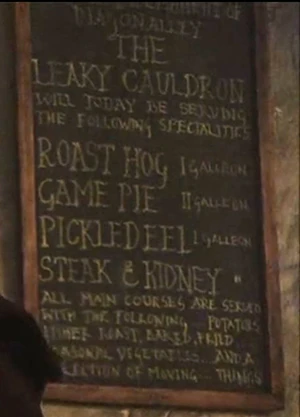 DIAGON ALLEY
THE
LEAKY CAULDRON
WILL TODAY BE SERVING
THE FOLLOWING SPECIALITIES
ROAST HOG I GALLEON
GAME PIE II GALLEON
PICKLED EEL I GALLEON
STEAK & KIDNEY "
ALL MAIN COURSES ARE SERVED
WITH THE FOLLOWING POTATOES
EITHER ROAST, BAKED, FRIED
SEASONAL VEGETABLES AND A
SELECTION OF MOVING... THINGS